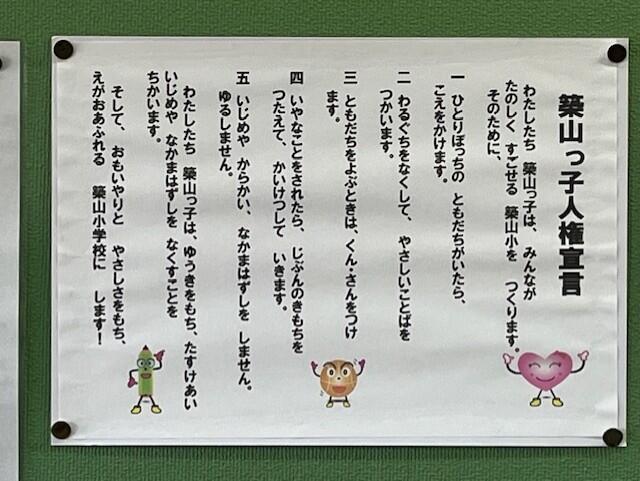 築山っ子人権宣言
わたしたち　築山っ子は、みんなが
たのしく　すごせる　築山小を　つくります。
そのために、
一　ひとりぼっちの　ともだちがいたら、
こえをかけます。
二　わるぐちをなくして、やさしいことばを
つかいます。
三　ともだちをよぶときは、くん・さんをつけ
ます。
四　いやなことをされたら、じぶんのきもちを
つたえて、かいけつして　いきます。
五　いじめや　からかい、なかまはずしを　しません。
ゆるしません。
わたしたち　築山っ子は、ゆうきをもち、たすけあい
いじめや　なかまはずしを　なくすことを
ちかいます。
そして、おもいやりと　やさしさをもち、
えがおあふれる　築山小学校に　します！